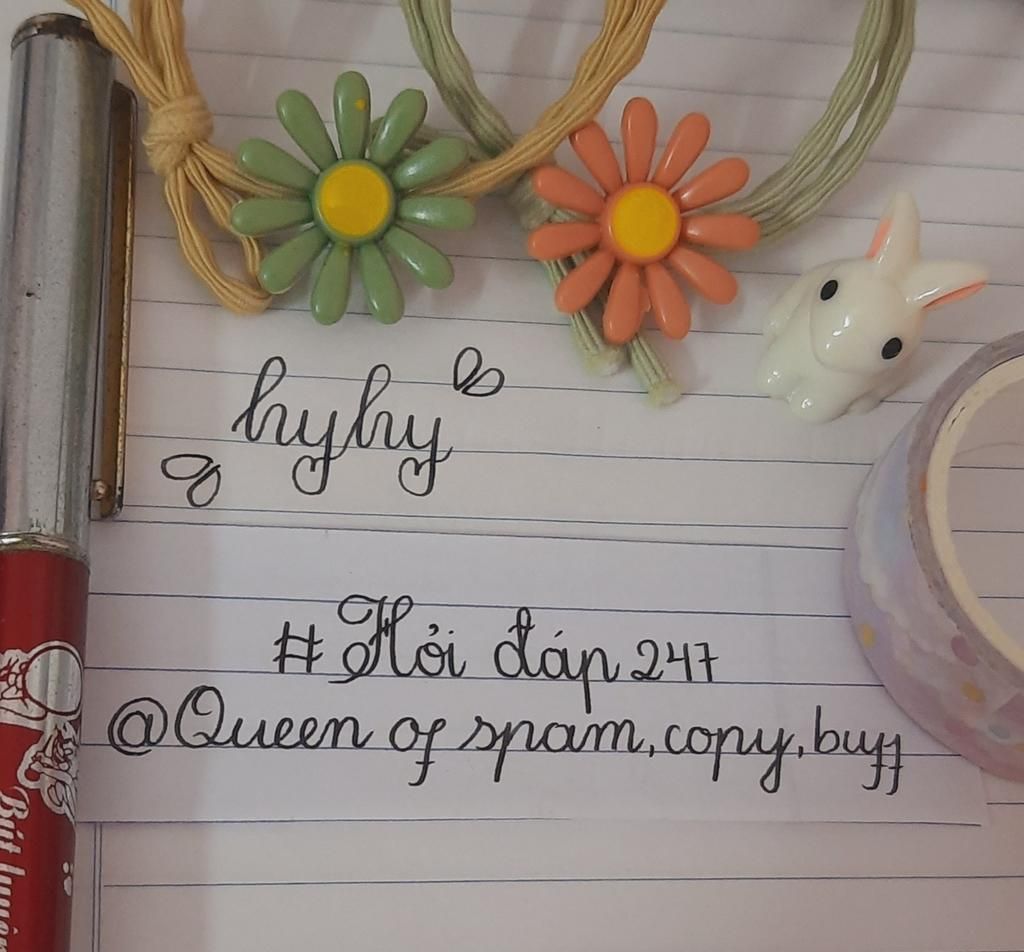 hyhy
# Hỏi đáp 247
@Queen of spam, copy, buff
Bút luyện